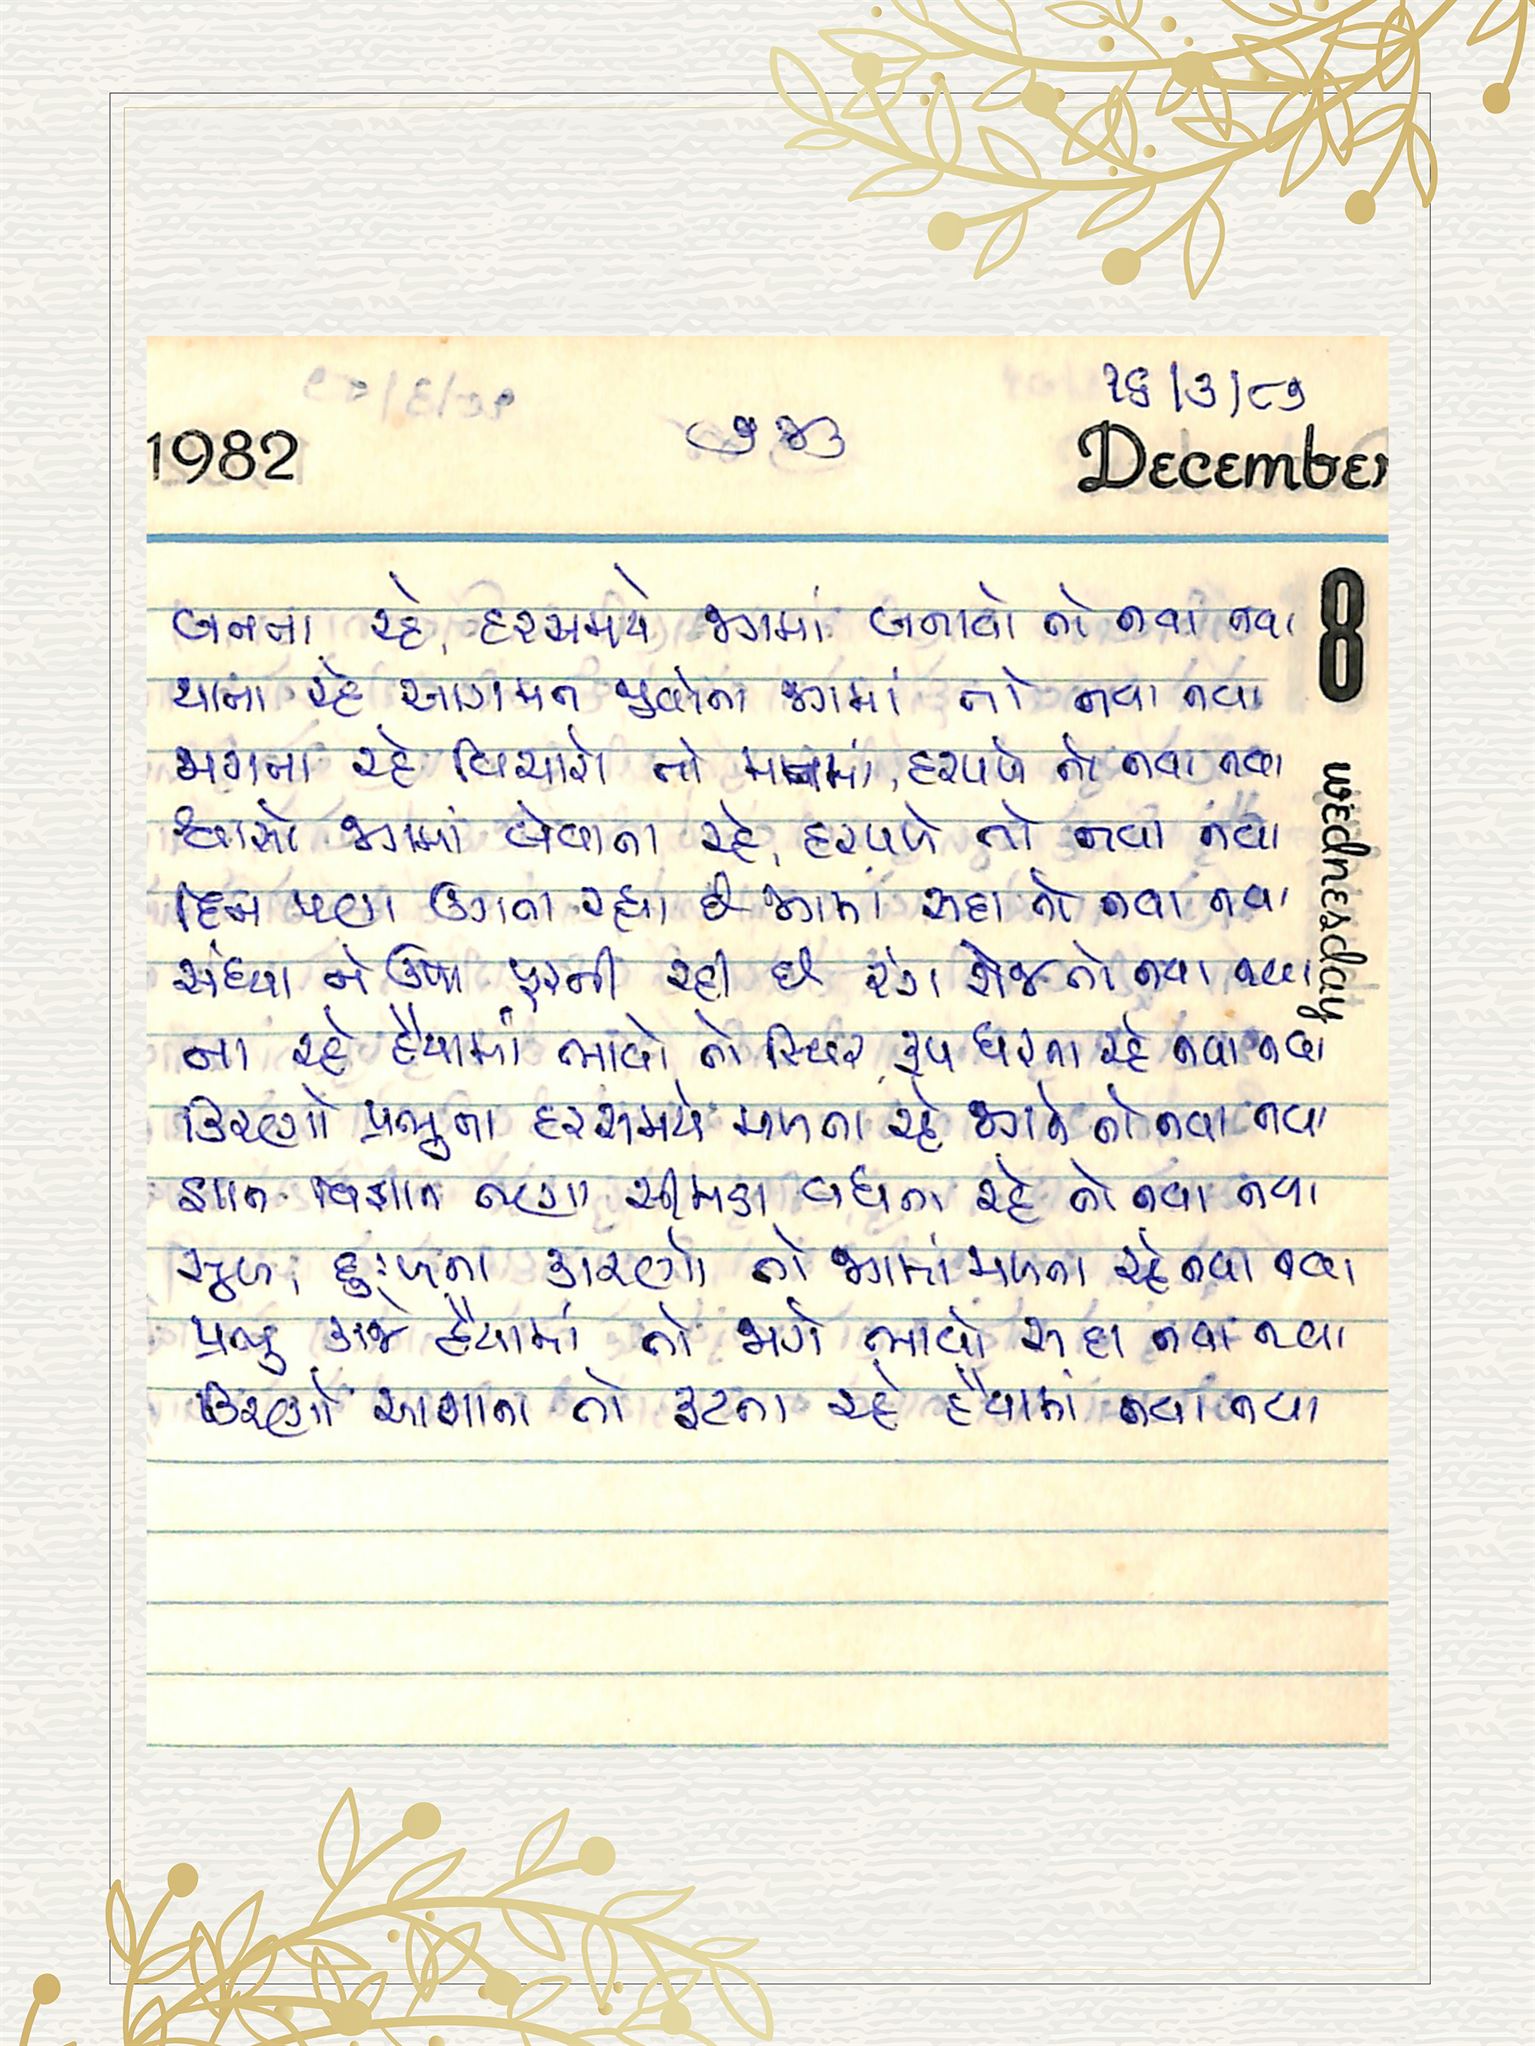 ૨૬/૩/૮૭
1982
૭૪૩
December
બનતા રહે, હરસમયે જગમાં બનાવો તો નવા નવા
8
થાતા રહે આગમન જીવોના જગમાં તો નવા નવા
જાગતા રહે વિચારો તો મનમાં, હરપળે તો નવા નવા
wednesday
શ્વાસો જગમાં લેવાતા રહે, હરપળે તો નવા નવા
દિન પણ ઉગતા રહ્યા છે જગમાં સદા તો નવા નવા
સંધ્યા ને ઉષા પૂરતી રહી છે રંગ રોજ તો નવા નવા
ના રહે હૈયામાં ભાવો તો સ્થિર, રૂપ ધરતા રહે નવા નવા
કિરણો પ્રભુના હરસમયે મળતા રહે જગને તો નવા નવા
જ્ઞાન વિજ્ઞાન તણા સીમાડા વધતા રહે તો નવા નવા
સુખ, દુઃખના કારણો તો જગમાં મળતા રહે નવા નવા
પ્રભુ કાજે હૈયામાં તો જાગે ભાવો સદા નવા નવા
કિરણો આશાના તો ફૂટતા રહે હૈયામાં નવા નવા